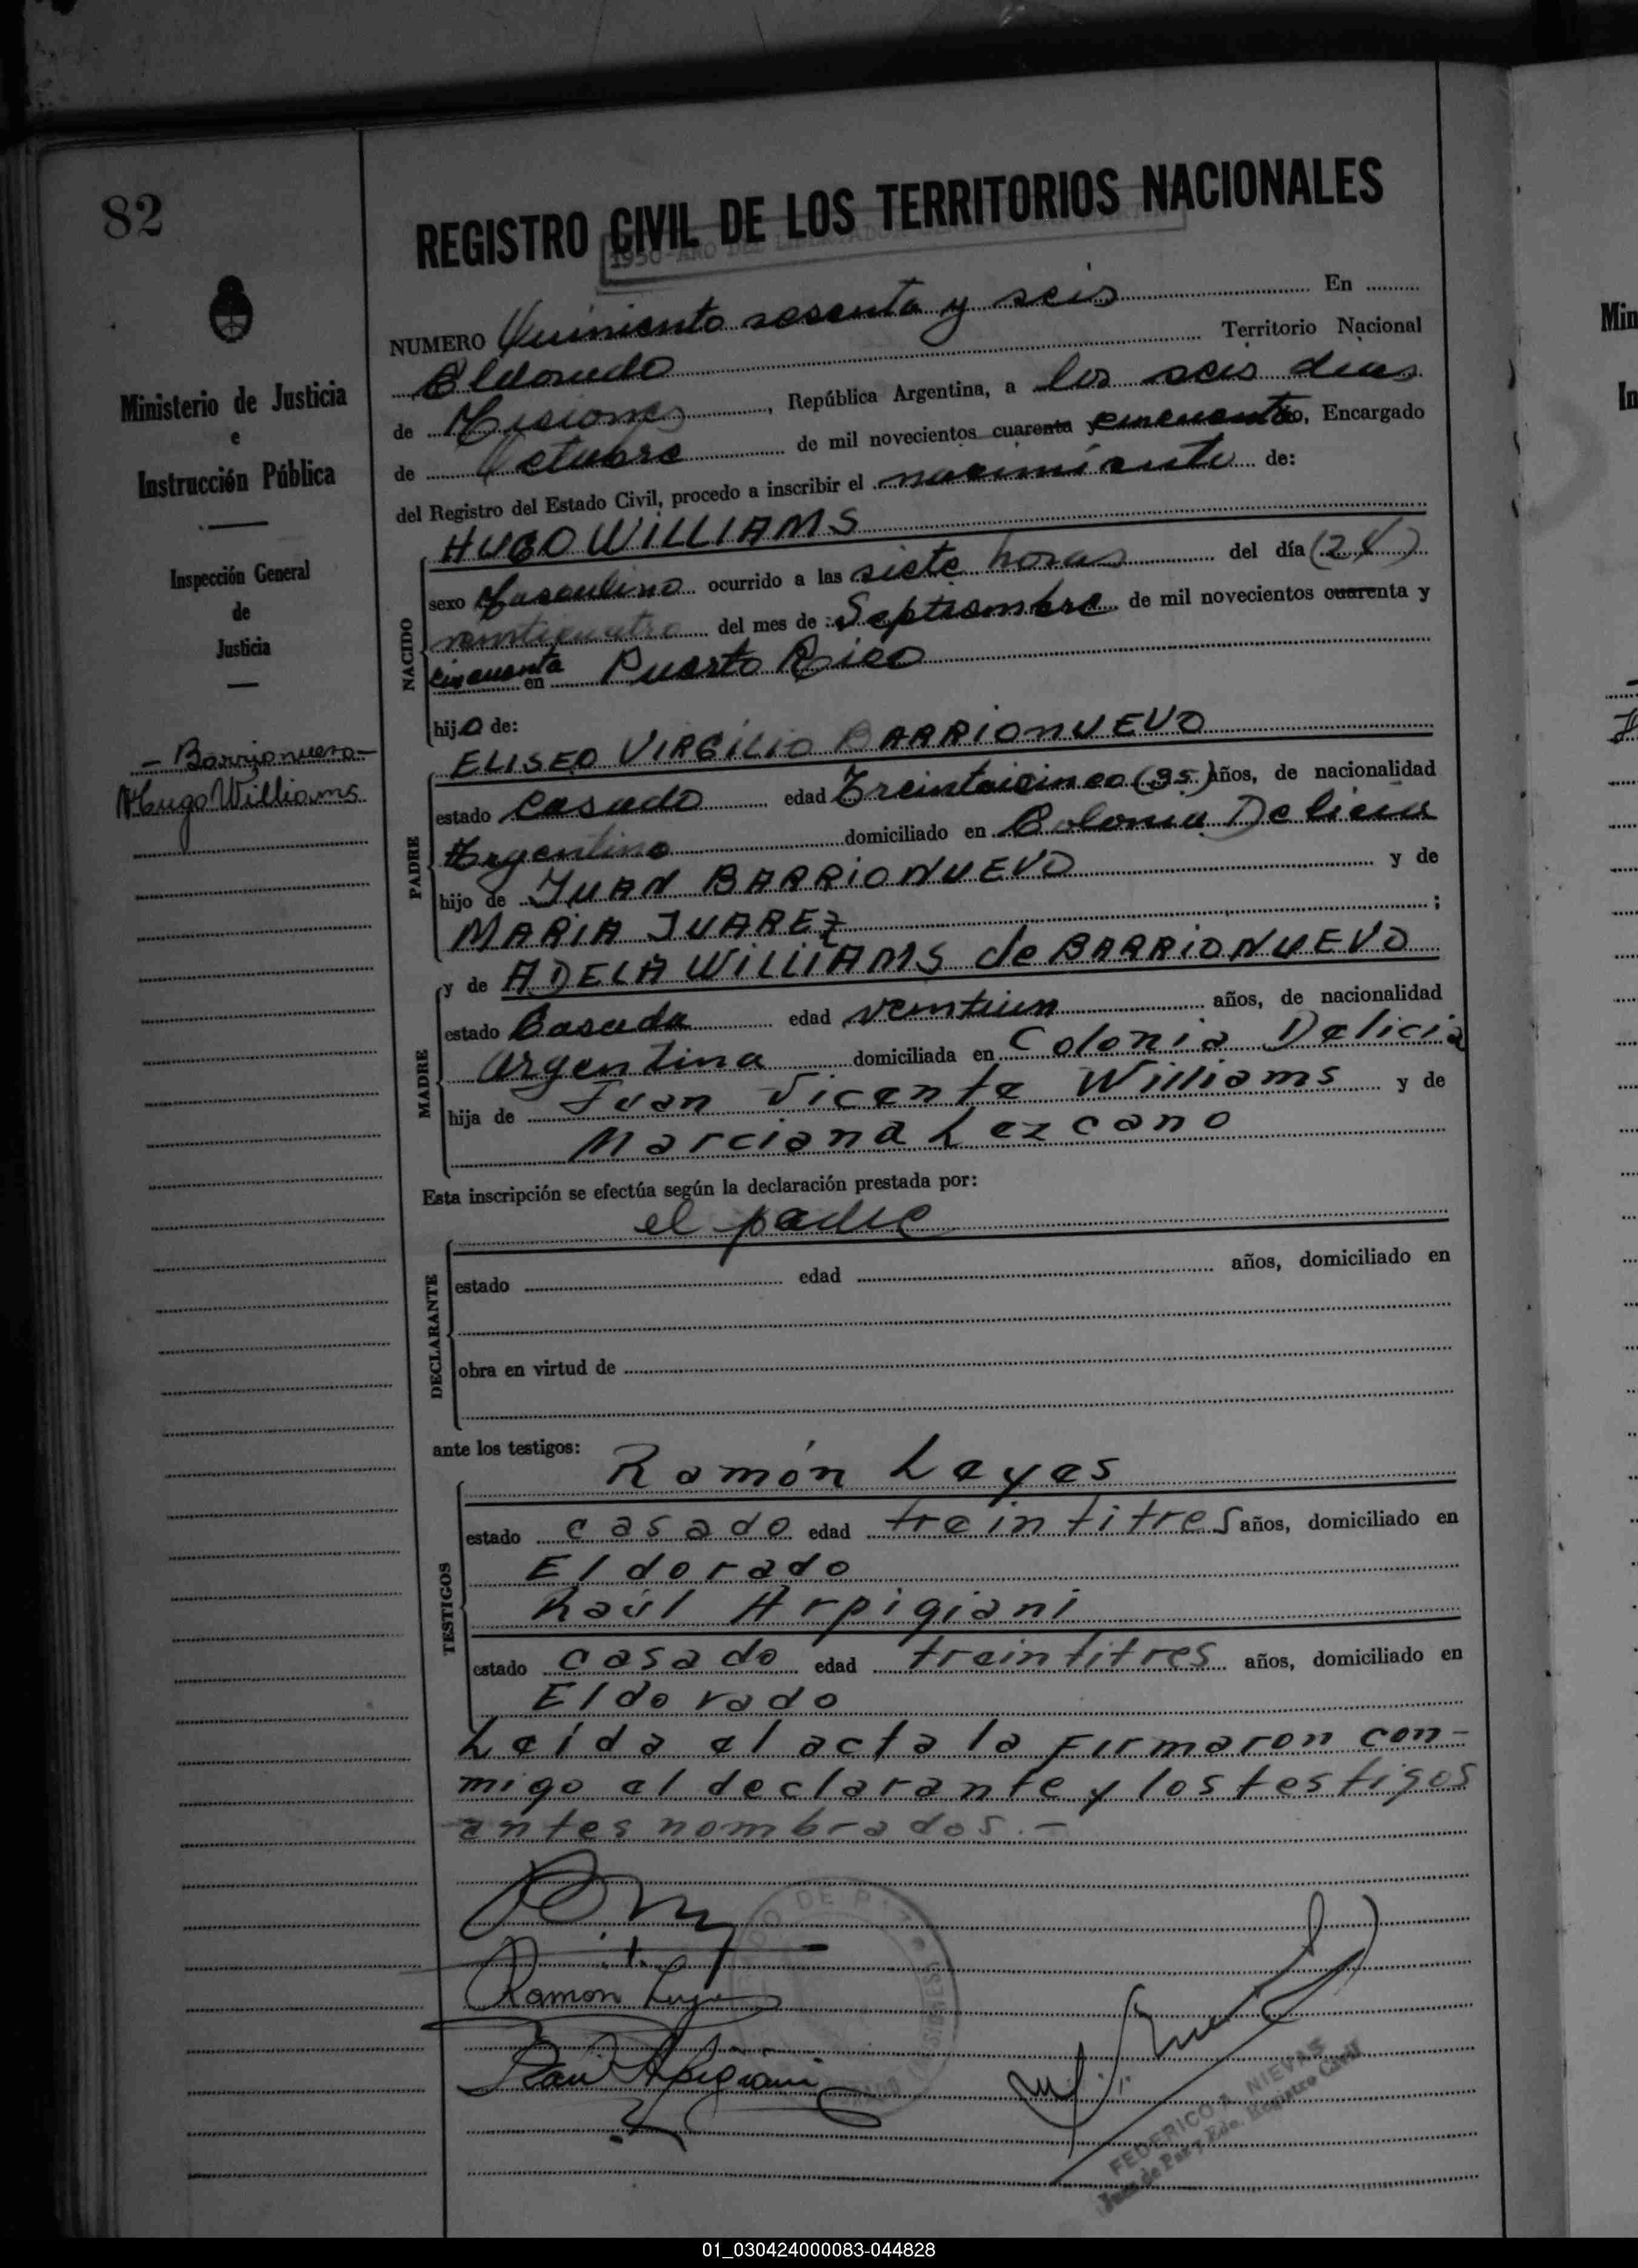 82
Ministerio de Justicia
e
Instrucción Pública
Inspección General
de
Justicia
- Barrionuevo -
Hugo Williams
REGISTRO CIVIL DE LOS TERRITORIOS NACIONALES
1950 - AÑO DEL LIBERTADOR
NUMERO Quiniento sesenta y seis En
Eldorado Territorio Nacional
de Misiones, República Argentina, a los seis dias
de Octubre de mil novecientos cuarenta y cincuenta, Encargado
del Registro del Estado Civil, procedo a inscribir el nacimiento de:
NACIDO
HUGO WILLIAMS
sexo Masculino ocurrido a las siete horas del día (24)
veinticuatro del mes de Septiembre de mil novecientos cuarenta y
cincuenta en Puerto Rico
hijo de:
PADRE
ELISEO VIRGILIO BARRIONUEVO
estado Casado edad Treintaicinco (35) años, de nacionalidad
Argentino domiciliado en Colonia Delicia
hijo de JUAN BARRIONUEVO y de
MARIA JUAREZ ;
MADRE
y de ADELA WILLIAMS de BARRIONUEVO
estado Casada edad veintiun años, de nacionalidad
Argentina domiciliada en Colonia Delicia
hija de Juan Vicente Williams y de
Marciana Lezcano
Esta inscripción se efectúa según la declaración prestada por:
el padre
DECLARANTE
estado edad años, domiciliado en
obra en virtud de
ante los testigos:
TESTIGOS
Ramón Leyes
estado casado edad treintitres años, domiciliado en
Eldorado
Raúl Arpigiani
estado casado edad treintitres años, domiciliado en
Eldorado
Leída el acta la firmaron con-
migo el declarante y los testigos
antes nombrados.-
Ramon Leyes
Raul Arpigiani
FEDERICO A. NIEVAS
Juez de Paz y Edo. Registro Civil
01_030424000083-044828